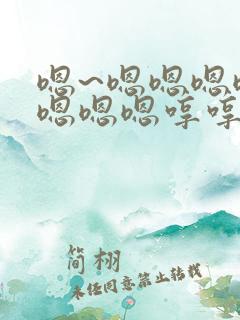 嗯~嗯嗯嗯
嗯嗯嗯哼哼
简栩
未经同意禁止转载